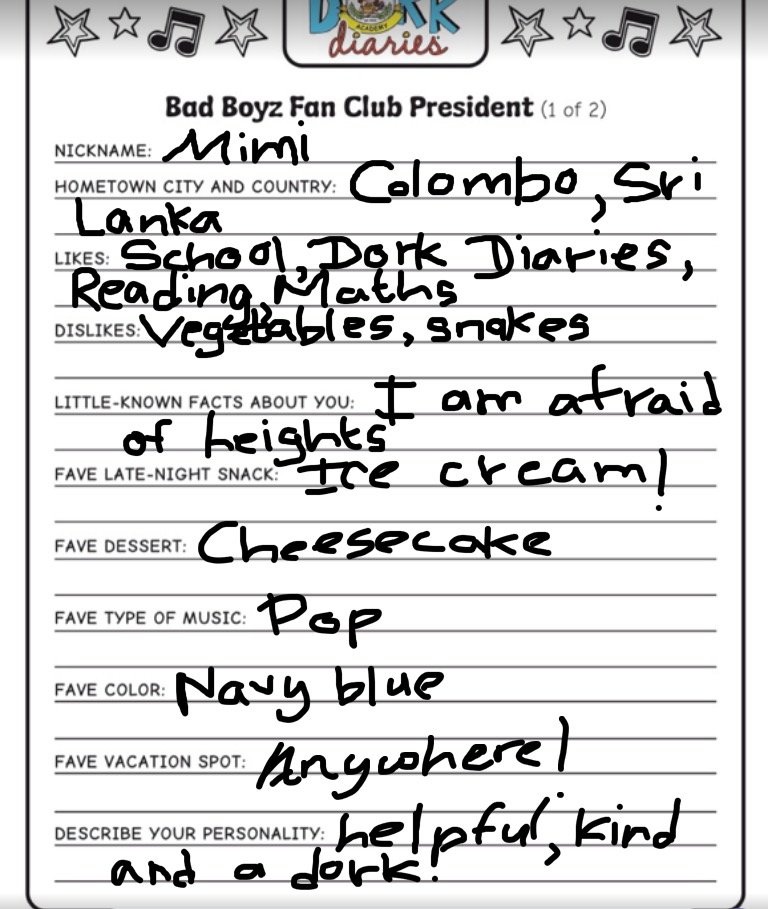 DORK
ACADEMY
diaries
Bad Boyz Fan Club President (1 of 2)
NICKNAME: Mimi
HOMETOWN CITY AND COUNTRY: Colombo, Sri
Lanka
LIKES: School, Dork Diaries,
Reading, Maths
DISLIKES: Vegetables, snakes
LITTLE-KNOWN FACTS ABOUT YOU: I am afraid
of heights
FAVE LATE-NIGHT SNACK: Ice cream!
FAVE DESSERT: Cheesecake
FAVE TYPE OF MUSIC: Pop
FAVE COLOR: Navy blue
FAVE VACATION SPOT: Anywhere!
DESCRIBE YOUR PERSONALITY: helpful, kind
and a dork!